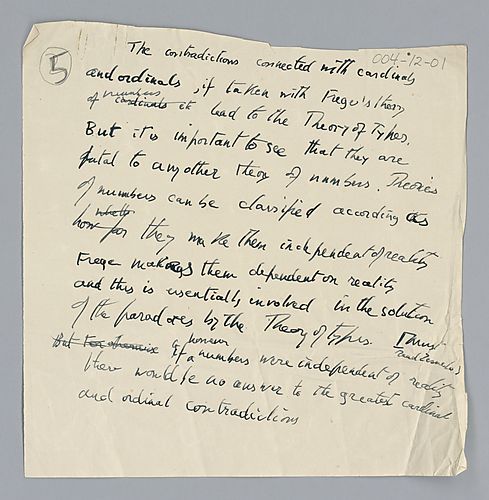 5
004-12-01
The contradictions connected with cardinals
and ordinals, if taken with Frege's theory
of numbers cardinals it lead to the Theory of Types.
But it is important to see that they are
fatal to any other theory of numbers. Theories
of numbers can be classified according as
whether how far they make them independent of reality
Frege makes them dependent on reality
and this is essentially involved in the solution
of the paradoxes by the Theory of types. I must
read
But If a numbers were independent of reality
there would be no answer to the greatest cardinal
and ordinal contradictions